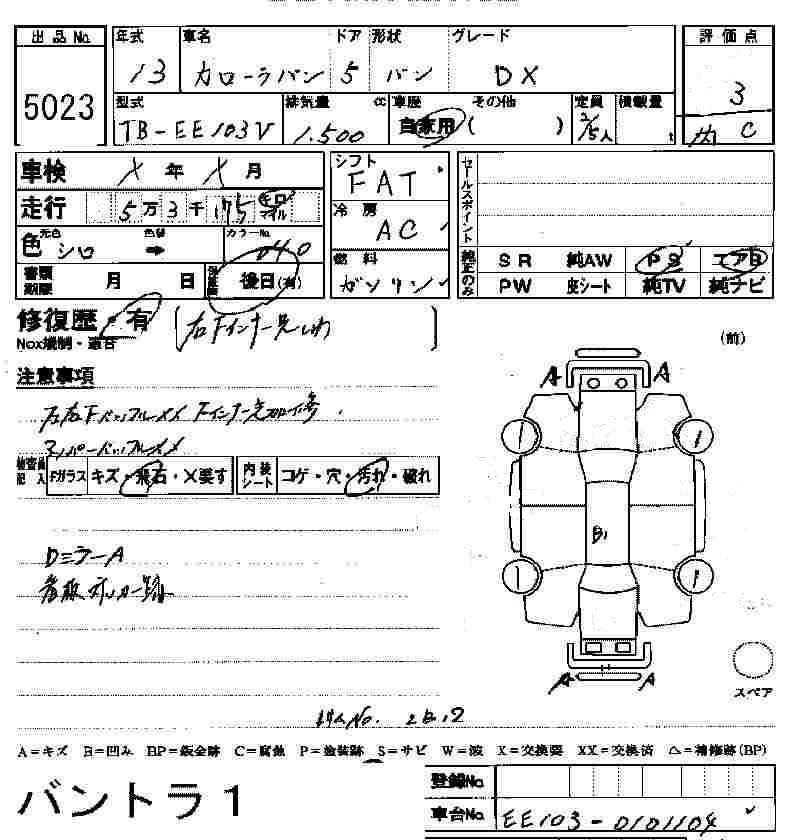 出品No. 年式 車名 ドア 形状 グレード 評価点
5023 13 カローラバン 5 バン DX 3
型式 排気量 cc 車歴 その他 定員 積載量
TB-EE103V 1.500 自家用 ( ) 2/5人 t 内 C
車検 X 年 X 月 シフト FAT セールスポイント
走行 5万3千175 キロ マイル 冷房 AC
色 元色 シロ 色替 ➡ カラーNo. 040
純正のみ SR 純AW PS エアB
書類期限 月 日 後日(有) 燃料 ガソリン PW 皮シート 純TV 純ナビ
修復歴・有 (右Fインナー先シワ) (前)
Nox規制・適合
注意事項
左右FバッフルメメFインナー先加修
リパーバッフルメメ
検査員記入 Fガラス キズ・飛石・X要す 内装シート コゲ・穴・汚れ・破れ
A A
1 1
B1
DミラーA
看板ステッカー跡
1 1
A A
スペア
No. 2812
A=キズ B=凹み BP=鈑金跡 C=腐蝕 P=塗装跡 S=サビ W=波 X=交換要 XX=交換済 △=補修跡(BP)
登録No.
バントラ1 車台No. EE103-0101104